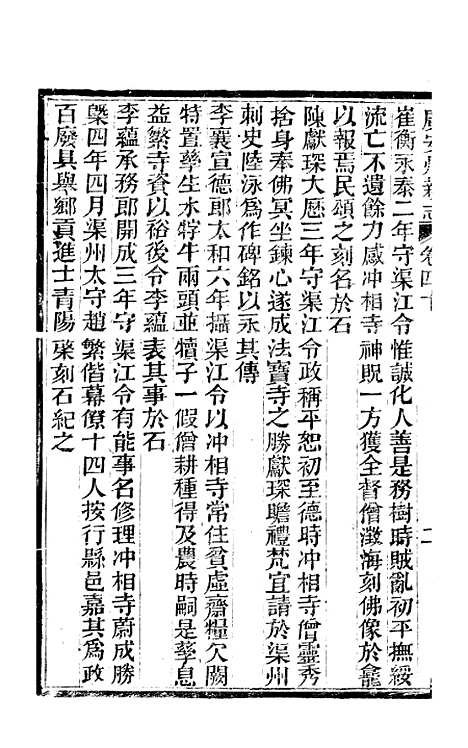 崔衡永泰二年守渠江令惟誠化人善是務樹時賊亂初平撫綏
流亡不遺餘力感冲相寺神貺一方獲全督僧澂海刻佛像於龕
以報焉民頌之刻名於石
陳獻琛大厯三年守渠江令政稱平恕初至德時冲相寺僧靈秀
捨身奉佛冥坐鍊心遂成法寶寺之勝獻琛瞻禮梵宜請於渠州
刺史陸泳爲作碑銘以永其傳
李襄宣德郎太和六年攝渠江令以冲相寺常住貧虛齋糧欠闕
特置孳生水牸牛兩頭並犢子一假僧耕種得及農時嗣是孳息
益繁寺資以裕後令李蘊表其事於石
李蘊承務郎開成三年守渠江令有能事名修理冲相寺蔚成勝
槩四年四月渠州太守趙繁偕幕僚十四人按行縣邑嘉其爲政
百廢具舉鄉貢進士青陽棨刻石紀之